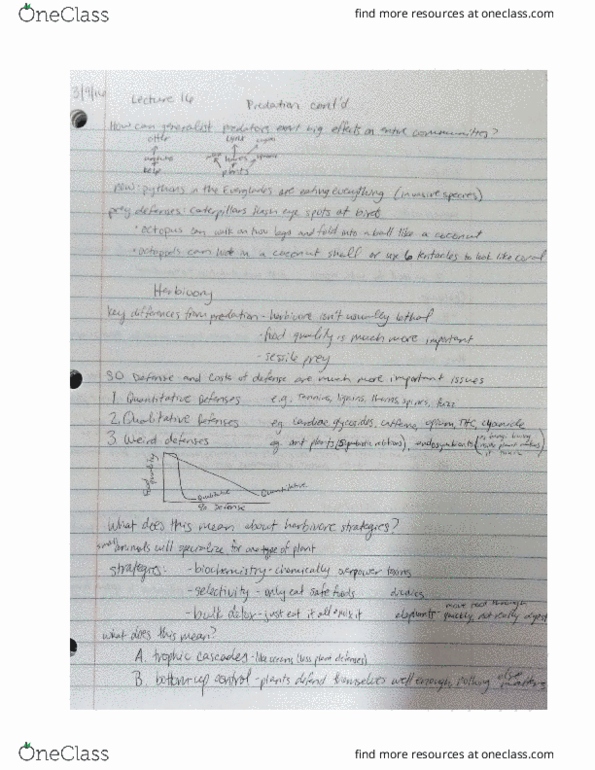 OneClass
find more resources at oneclass.com
3/9/16
Lecture 16 Predation cont'd
How can generalist predators exert big effects on entire communities?
otter lynx
kelp plants
new: pythons in the Everglades are eating everything (invasive species)
prey defenses: caterpillars flash eye spots at birds
• octopus can walk on two legs and fold into a ball like a coconut
• octopods can hide in a coconut shell or use 6 tentacles to look like coral
Herbivory
key differences from predation - herbivore isn't usually lethal
- food quality is much more important
- sessile prey
SO Defense and costs of defense are much more important issues
1. Quantitative Defenses e.g. Tannins, lignins, thorns, spines, fuzz
2. Qualitative Defenses eg. cardiac glycosides, caffeine, opium, THC, cyanide
3. Weird defenses eg. ant plants (symbiotic), endosymbionts
Food quality
Qualitative
Quantitative
% Defense
What does this mean about herbivore strategies?
small animals will specialize for one type of plant
strategies: - biochemistry - chemically overpower toxins
- selectivity - only eat safe foods dikdiks
- bulk detox - just eat it all elephants - move food through
quickly, not really digest
what does this mean?
A. trophic cascades - (less plant defenses)
B. bottom-up control - plants defend themselves well enough, nothing else matters
OneClass
find more resources at oneclass.com